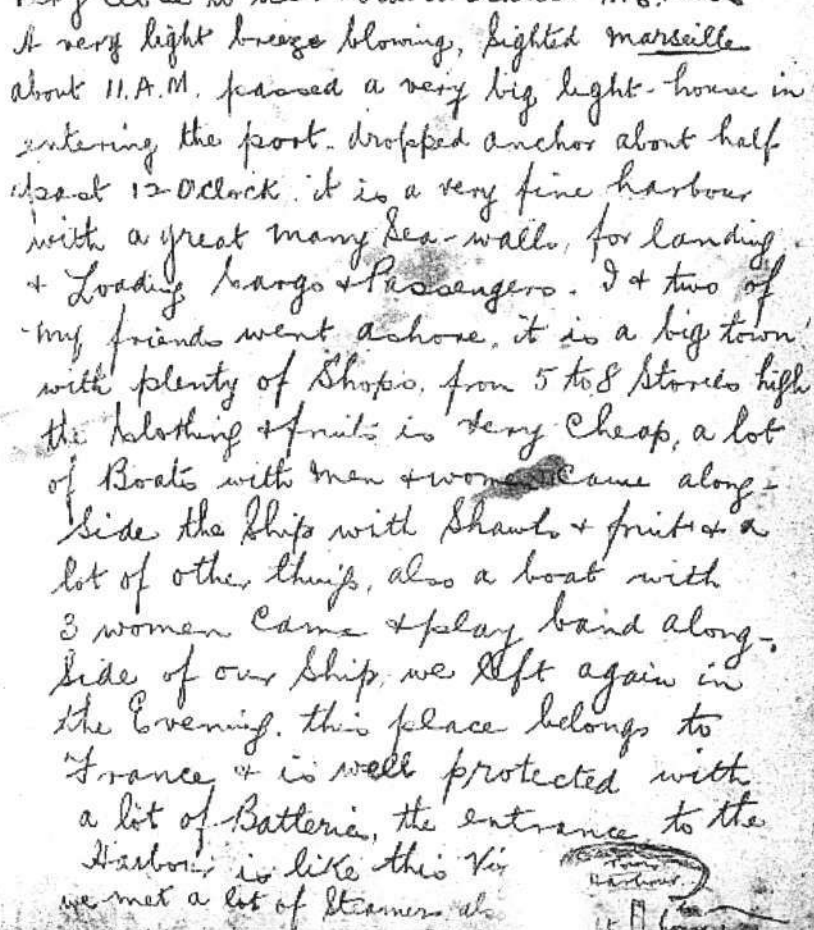 A very light breeze blowing, Sighted Marseille
about 11.A.M. passed a very big light-house in
entering the port. dropped anchor about half
past 12 OClock. it is a very fine harbour
with a great many Sea-walls, for landing
& Loading Cargo & Passengers. I & two of
my friends went ashore, it is a big town
with plenty of Shops, from 5 to 8 Stories high
the Clothing & fruits is very Cheap, a lot
of Boats with men & women Came along-
Side the Ship with Shawls & fruits & a
lot of other things, also a boat with
3 women Came & play band along-
Side of our Ship, we left again in
the Evening. this place belongs to
France & is well protected with
a lot of Batteries, the entrance to the
Harbour is like this Viz
Town
Harbour
we met a lot of Steamers